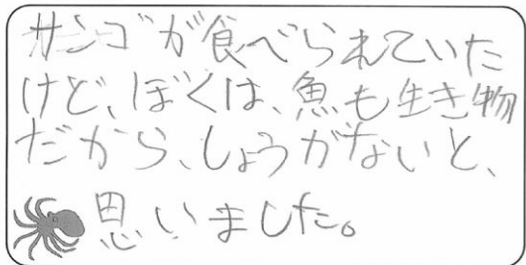 サンゴが食べられていた
けど、ぼくは、魚も生き物
だから、しょうがないと、
思いました。